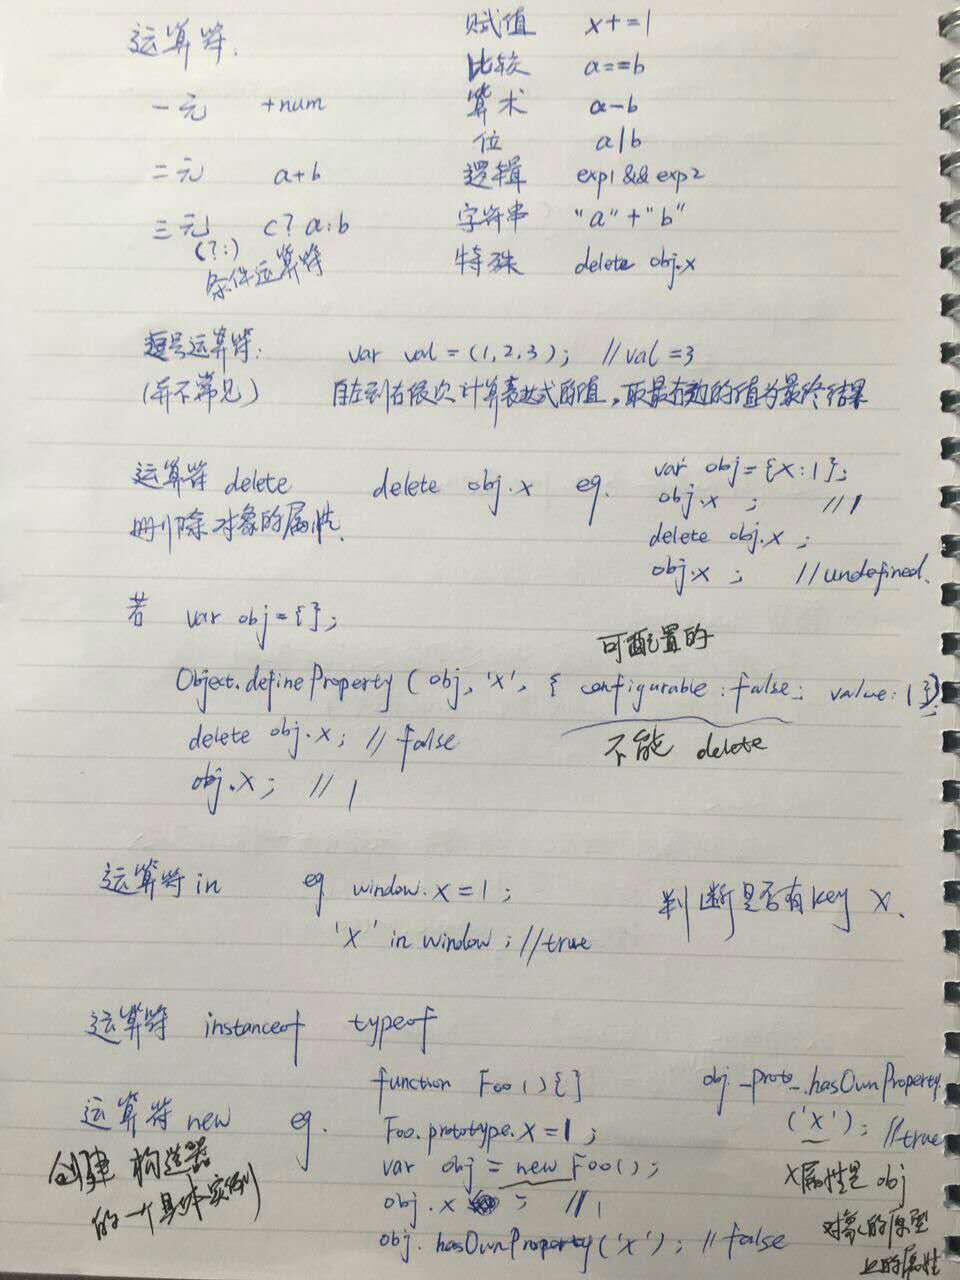 运算符.
赋值 x+=1
比较 a==b
一元 +num
算术 a-b
位 a|b
二元 a+b
逻辑 exp1 && exp2
三元 c? a:b
(?:)
条件运算符
字符串 "a"+"b"
特殊 delete obj.x
逗号运算符: var val = (1,2,3); //val=3
(并不常见) 自左到右依次计算表达式的值,取最右边的值为最终结果
运算符 delete delete obj.x eg. var obj={x:1};
删除对象的属性. obj.x ; //1
delete obj.x ;
obj.x ; //undefined.
若 var obj={};
可配置的
Object.defineProperty ( obj, 'x', { configurable : false; value: 1 });
delete obj.x ; // false
不能 delete
obj.x ; // 1
运算符 in eg window.x = 1 ; 判断是否有key x.
'x' in window ; //true
运算符 instanceof typeof
运算符 new eg. function Foo(){}
创建 构造器
的一个具体实例
Foo.prototype.x = 1 ;
var obj = new Foo();
obj.x ; // 1
obj. hasOwnProperty('x') ; // false
obj._proto_.hasOwnProperty
('x') ; //true
x属性是 obj
对象的原型
上的属性